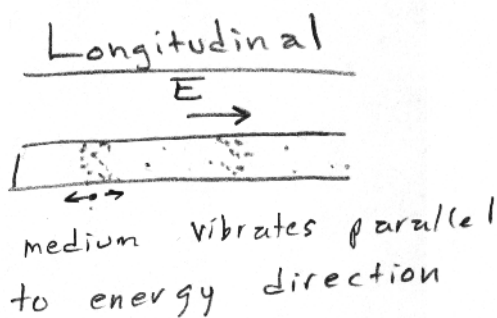 Longitudinal
E
medium vibrates parallel
to energy direction